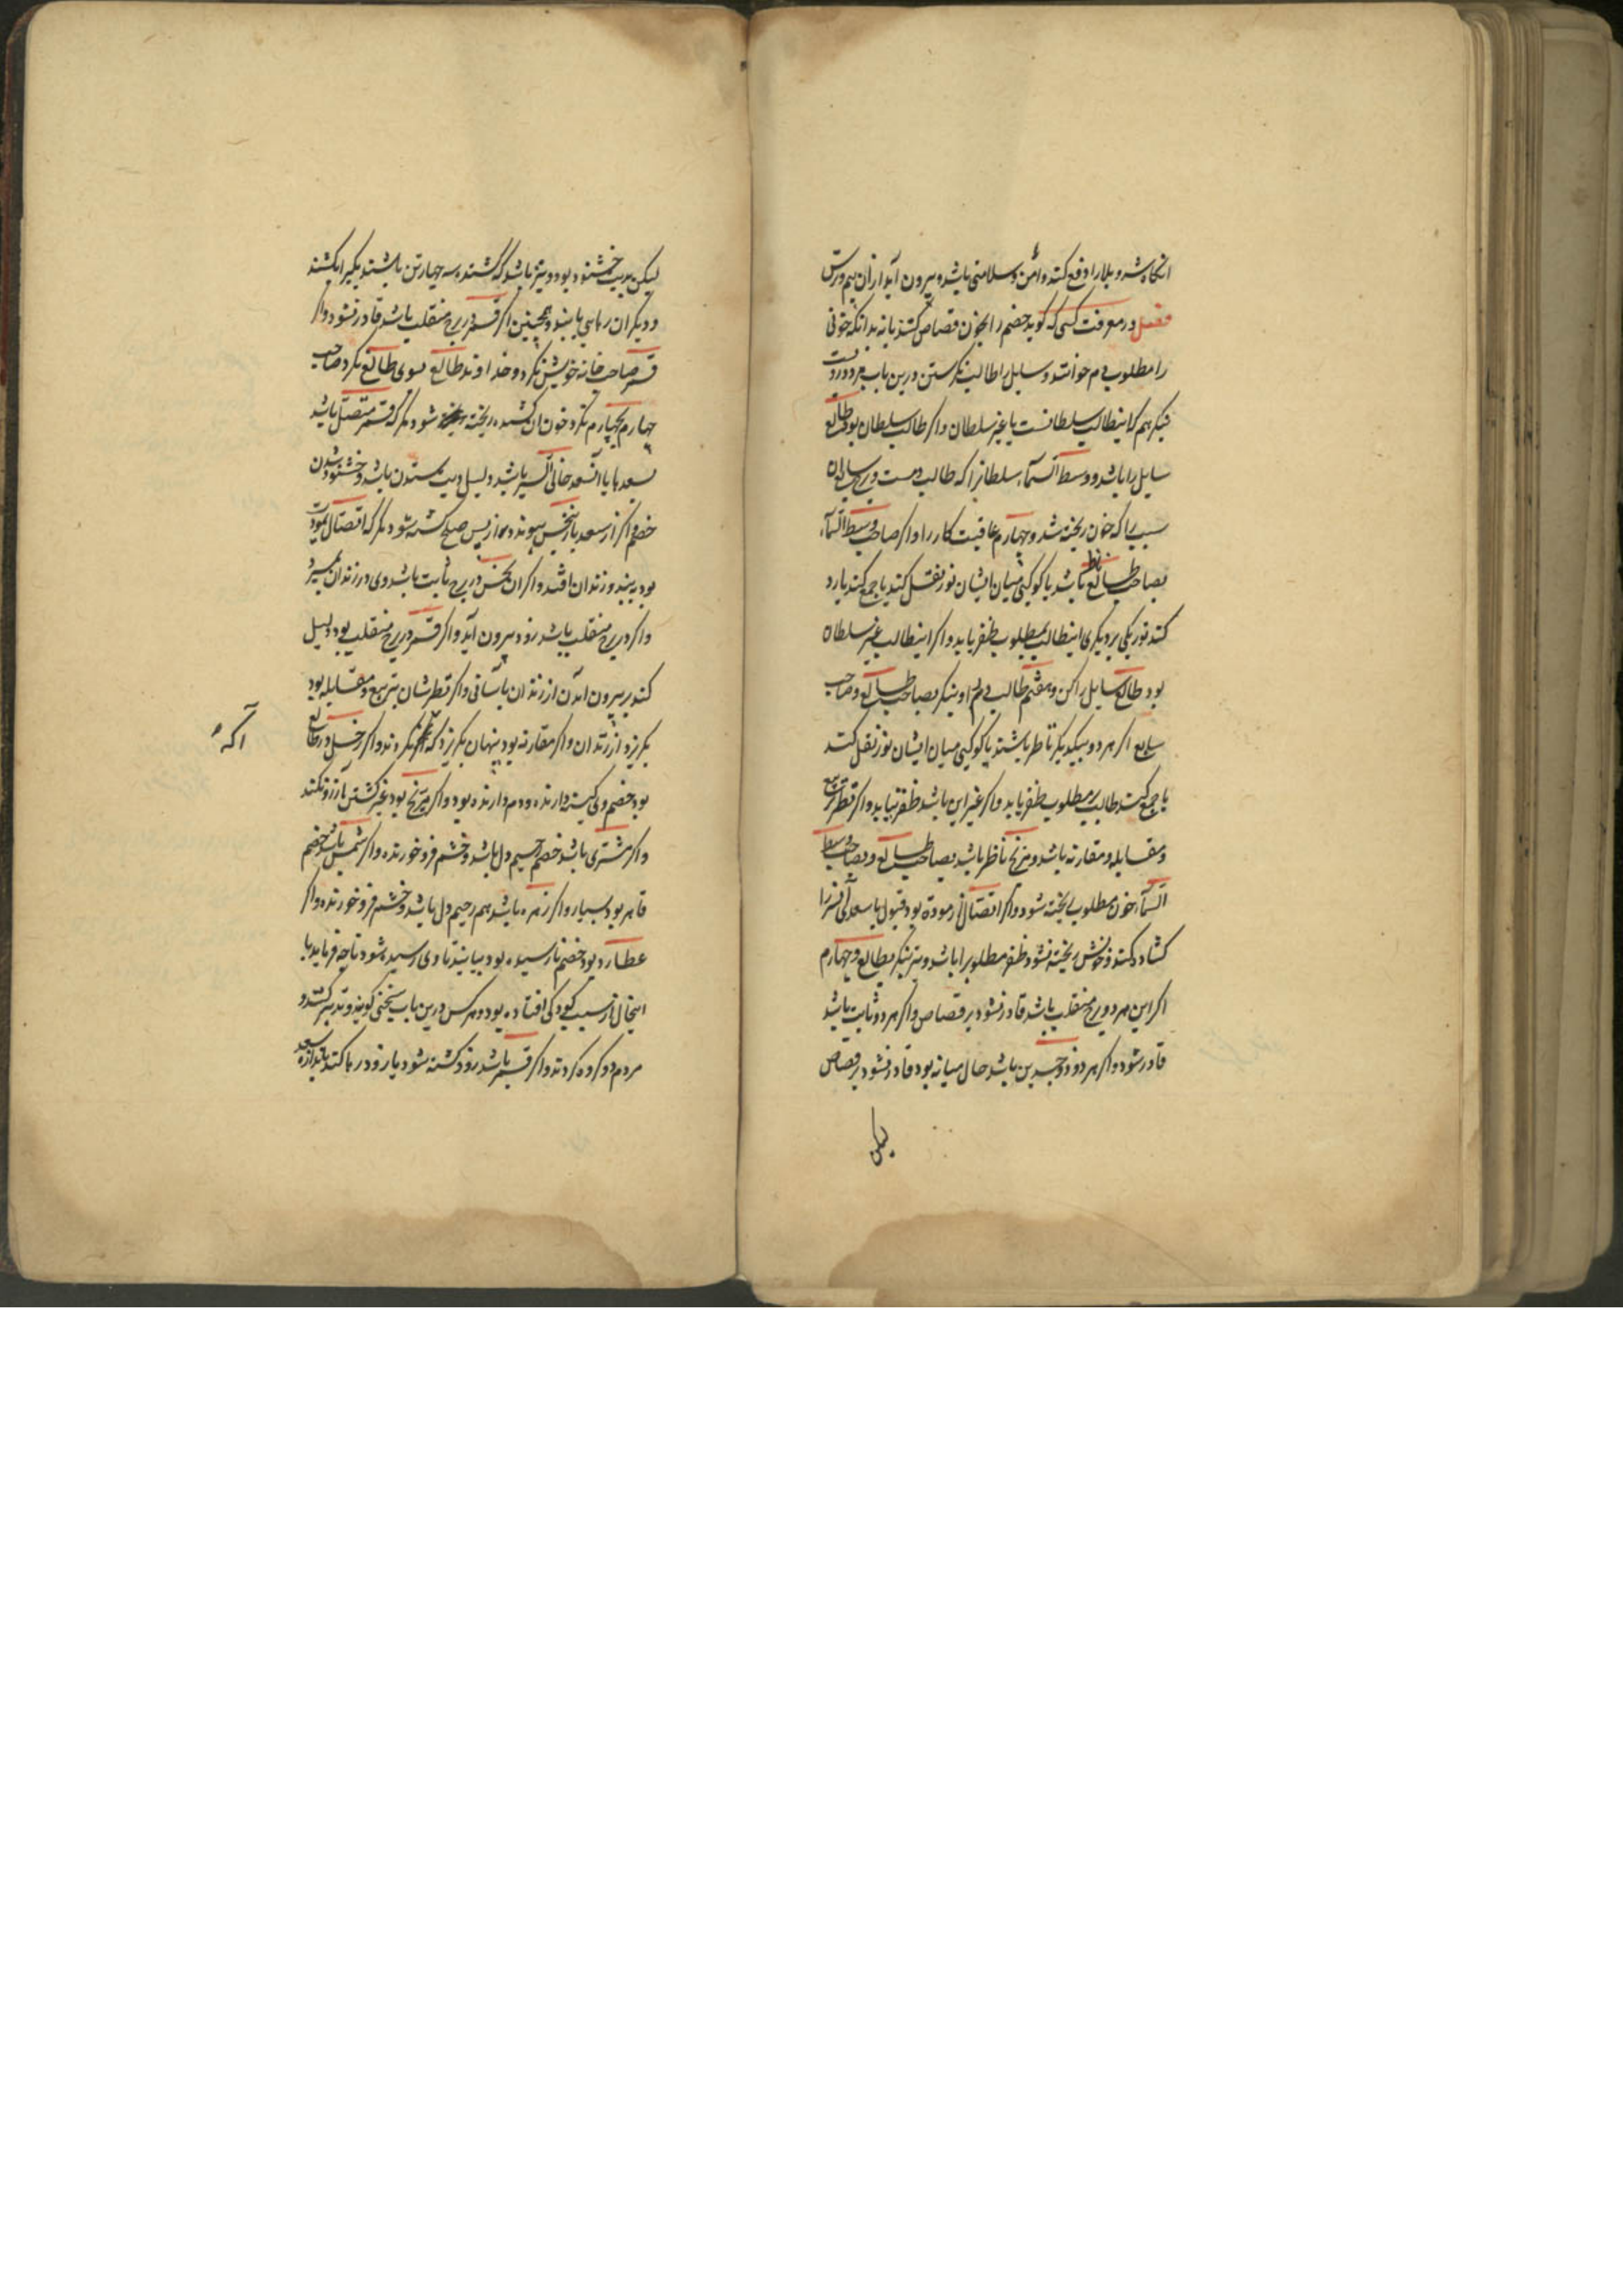 انگاه شر و بلا را دفع کند و امن و سلامتی باشد و بیرون آید از آن بیم و رس
فصل در معرفت کسی که کوید خصم را بخون قصاص کنند یا نه بدانکه خونی
را مطلوب دم خوانند و سایل را طالب نکرستن درین باب بر دو رویست
بنکر هم کاینطالب سلطانست یا غیر سلطان و اکر طالب سلطان بود طالع
سایل را باشد و وسط السماء سلطانرا که طالب دمست و برج
سببی را که خون ریخته شد و چهارم عاقبت کار را و اکر صاحب وسط السماء
بصاحب طالع ناظر باشد یا کوکبی میان ایشان نور نقل کند یا جمع کند یا رد
کند نور یکی بر دیکری اینطالب بمطلوب ظفر یابد و اکر اینطالب غیر سلطان
بود طالع سایل را کن و هفتم طالب دم را و بنکر بصاحب طالع و صاحب
سابع اکر هر دو بیکدیکر ناظر باشند یا کوکبی میان ایشان نور نقل کند
یا جمع کند طالب بر مطلوب ظفر یابد و اکر غیر این باشد ظفر نیابد و اکر نظر تربیع
و مقابله و مقارنه باشد و مریخ ناظر باشد بصاحب طالع و بصاحب وسط
السماء خون مطلوب ریخته شود و اکر اتصال از مودة بود و قبول یا سعدی آن
کشاده کند خونش ریخته نشود و ظفر مطلوب را باشد و نیز بنکر بطالع و چهارم
اکر این هر دو برج منقلب باشد قادر نشود بر قصاص و اکر هر دو ثابت باشد
قادر شود و اکر هر دو ذو جسدین باشد حال میانه بود قادر نشود بر قصاص
لیکن
لیکن بدیت خشنود بود و نیز باشد که کشنده سه چهار تن باشند یکیرا بکشند
و دیکران رهایی یابند و همچنین اکر قمر در برج منقلب باشد قادر نشود و اکر
قمر صاحب خانه خویش نکرد و خداوند طالع سوی طالع نکرد و صاحب
چهارم بچهارم نکرد خون آن کشنده ریخته شود مکر که قمر متصل باشد
بسعد یا با آنسعد خانی السیر باشد دلیل دیت ستدن باشد و خشنود شدن
خصم و اکر از سعد باز نحس پیوندد از پس صلح کشته شود مکر که اتصال بمودت
بود ببند و زندان افتد و اکر آن نحس در برج ثابت باشد وی در زندان بمیرد
و اکر در برج منقلب باشد زود بیرون آید و اکر قمر در برج منقلب بود دلیل
کند بر بیرون آمدن از زندان بآسانی و اکر نظرشان تربیع و مقابله بود
بکریزد از زندان و اکر مقارنه بود پنهان بکریزد که نکردند و اکر زحل در طالع
آکه
بود خصم ولی کینه دارنده و دم دارنده بود و اکر مریخ بود غیر کشتن آرزو نکند
و اکر مشتری باشد خصم رحیم دل باشد و خشم فرو خورنده و اکر شمس باشد خصم
قاهر بود بسیار و اکر زهره باشد هم رحیم دل باشد و خشم فرو خورنده و اکر
عطارد بود خصم نارسیده بود بیایند تا وی رسیده شود تا چه فرماید یا
اینحال از سبب کودکی افتاده بود و هر کس درین باب سخنی کویند و تدبیر کنند و
مردم دو کروه کردند و اکر قمر باشد زود کشته شود یا زود رها کند باندازه سعد